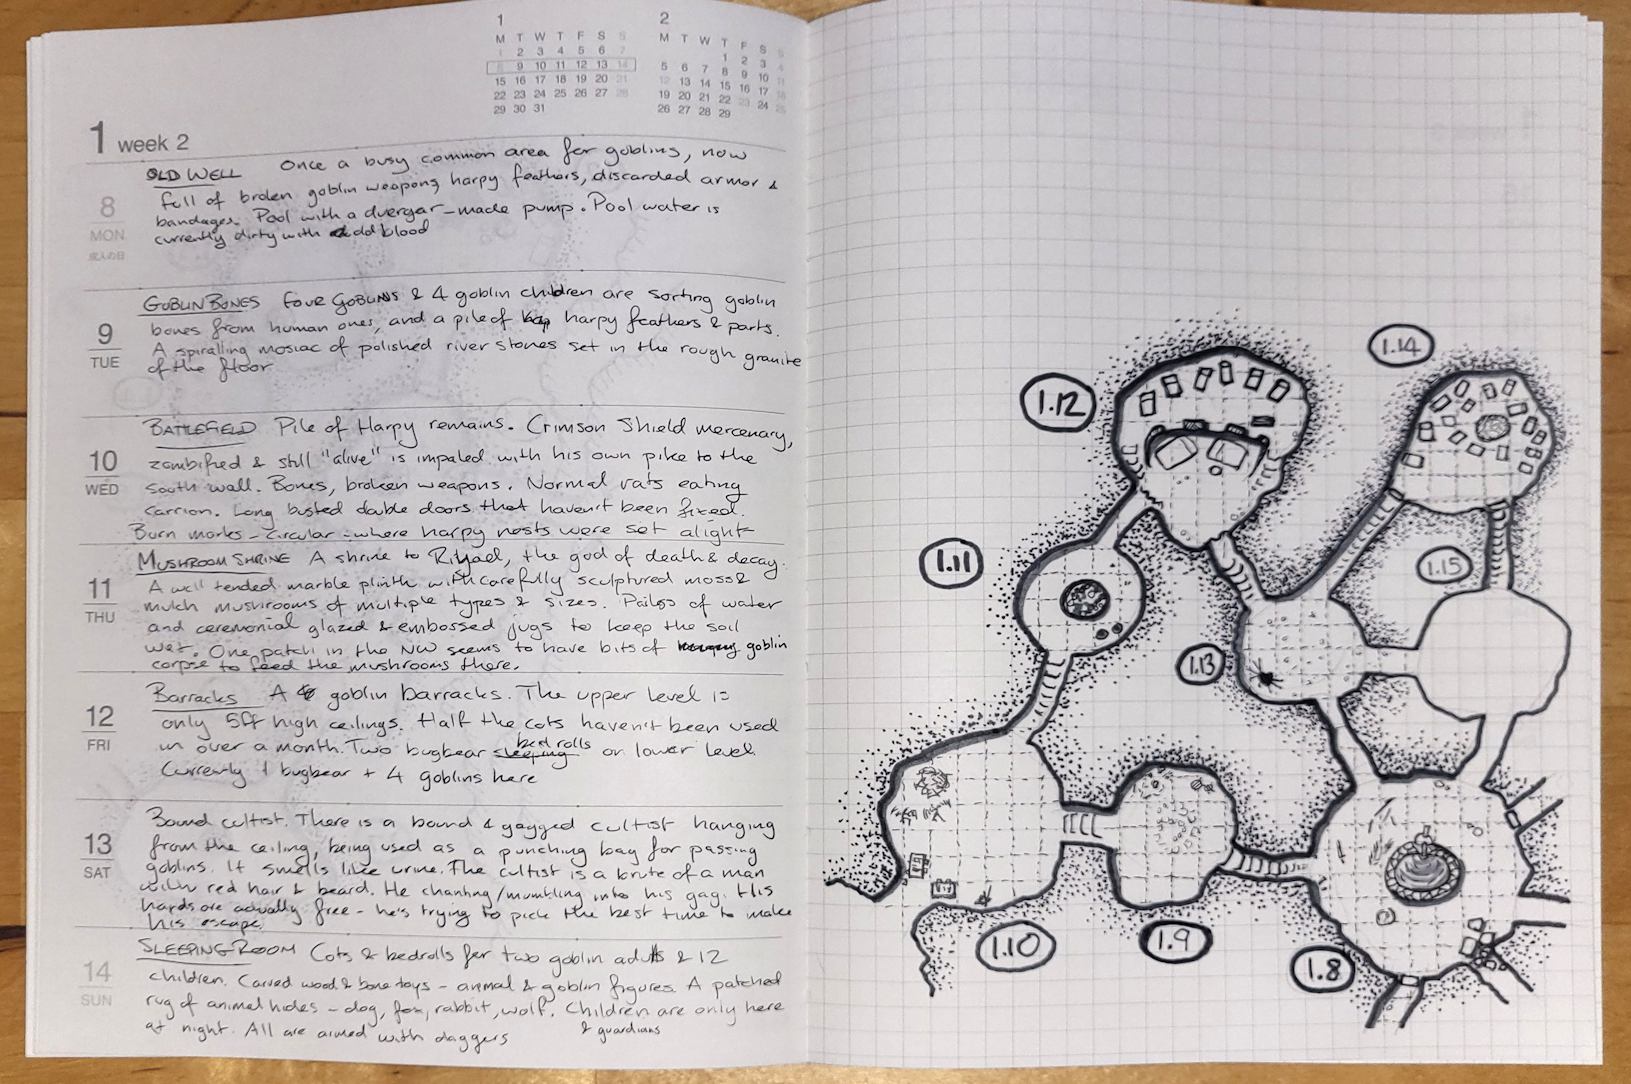 1
M T W T F S S
1 2 3 4 5 6 7
8 9 10 11 12 13 14
15 16 17 18 19 20 21
22 23 24 25 26 27 28
29 30 31
2
M T W T F S S
1 2 3 4
5 6 7 8 9 10 11
12 13 14 15 16 17 18
19 20 21 22 23 24 25
26 27 28 29
1 week 2
8
MON
成人の日
OLD WELL Once a busy common area for goblins, now
full of broken goblin weapons, harpy feathers, discarded armor &
bandages. Pool with a duergar-made pump. Pool water is
currently dirty with old blood
9
TUE
GOBLIN BONES Four GOBLINS & 4 goblin children are sorting goblin
bones from human ones, and a pile of harpy feathers & parts.
A spiralling mosiac of polished river stones set in the rough granite
of the floor
10
WED
BATTLEFIELD Pile of Harpy remains. Crimson Shield mercenary,
zombified & still "alive" is impaled with his own pike to the
south wall. Bones, broken weapons. Normal rats eating
carrion. Long busted double doors that haven't been fixed.
Burn marks - circular - where harpy nests were set alight
11
THU
MUSHROOM SHRINE A shrine to, the god of death & decay.
A well tended marble plinth with carefully sculptured moss &
mulch mushrooms of multiple types & sizes. Pails of water
and ceremonial glazed & embossed jugs to keep the soil
wet. One patch in the NW seems to have bits of goblin
corpse to feed the mushrooms there.
12
FRI
Barracks A goblin barracks. The upper level is
only 5ft high ceilings. Half the cots haven't been used
in over a month. Two bugbear bed rolls on lower level.
Currently 1 bugbear + 4 goblins here
13
SAT
Bound cultist. There is a bound & gagged cultist hanging
from the ceiling, being used as a punching bag for passing
goblins. It smells like urine. The cultist is a brute of a man
with red hair & beard. He chanting/mumbling into his gag. His
hands are actually free - he's trying to pick the best time to make
his escape.
14
SUN
SLEEPING ROOM Cots & bedrolls for two goblin adults & 12
children. Carved wood & bone toys - animal & goblin figures. A patched
rug of animal hides - dog, fox, rabbit, wolf. Children & guardians are only here
at night. All are armed with daggers
1.14
1.12
1.11
1.15
1.13
1.10
1.9
1.8